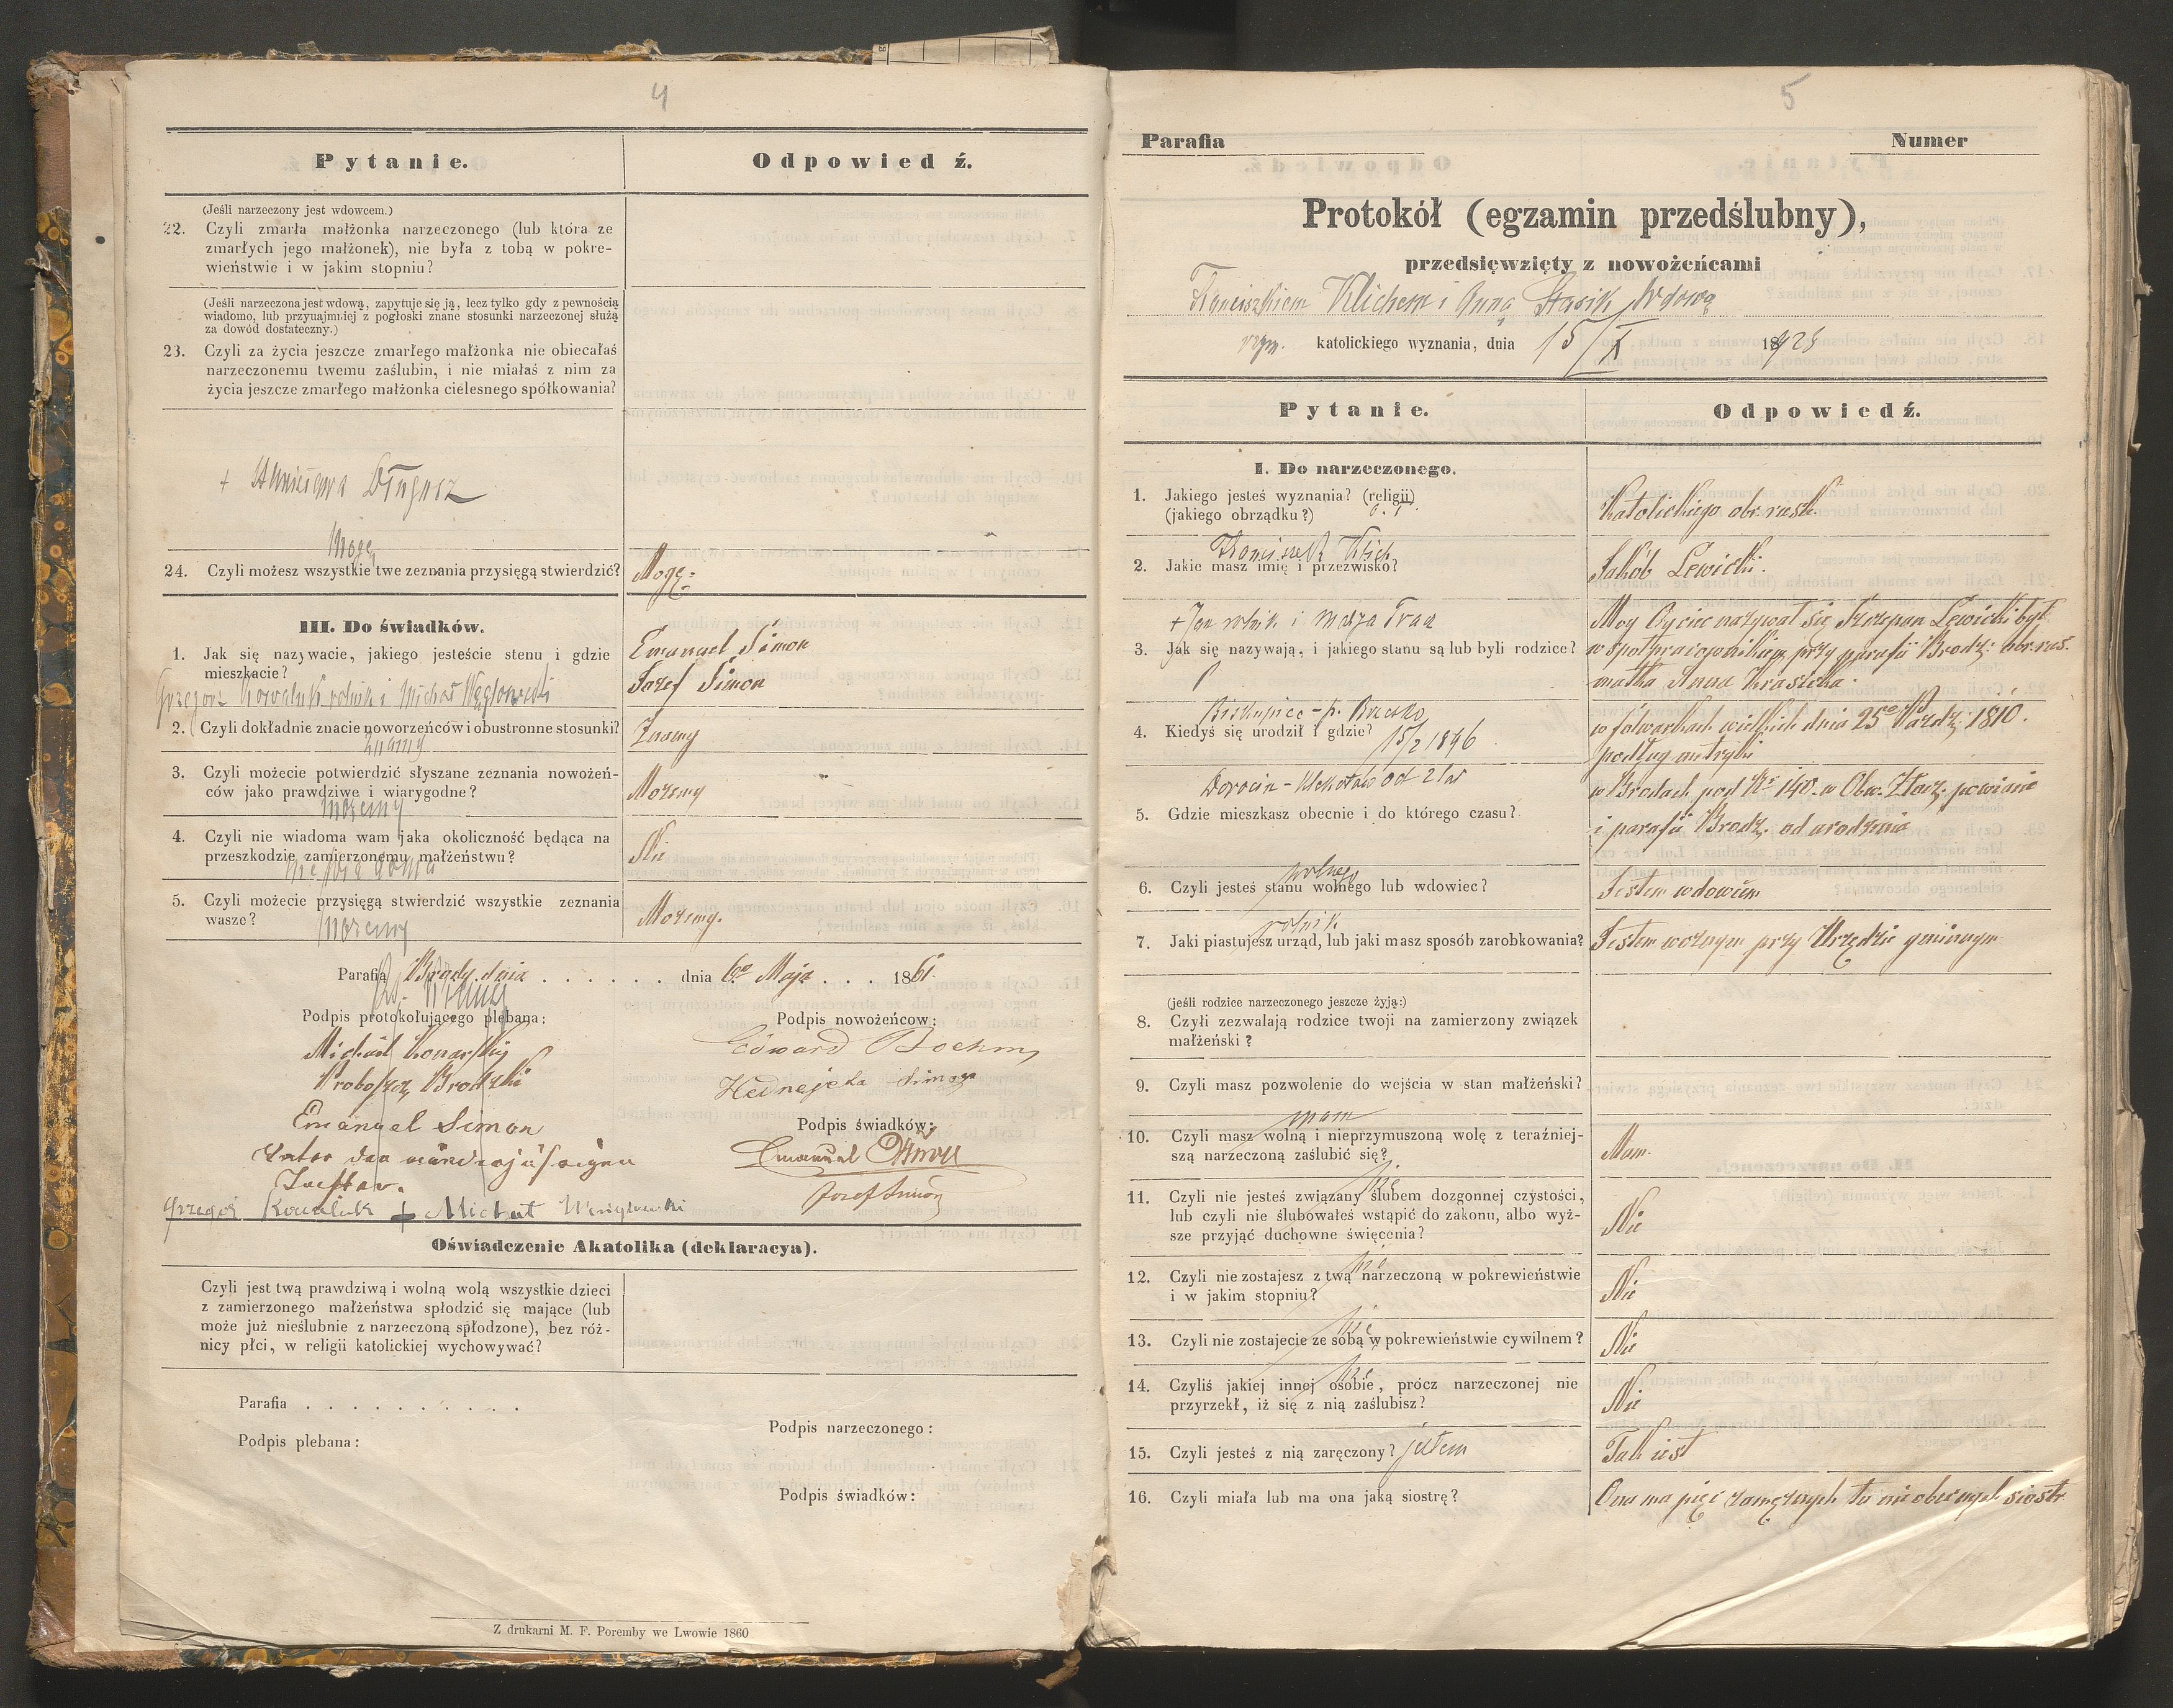 4
Pytanie.
Odpowiedź.
(Jeśli narzeczony jest wdowcem.)
22. Czyli zmarła małżonka narzeczonego (lub która ze
zmarłych jego małżonek), nie była z tobą w pokre-
wieństwie i w jakim stopniu?
(Jeśli narzeczona jest wdową, zapytuje się ją, lecz tylko gdy z pewnością
wiadomo, lub przynajmniej z pogłoski znane stosunki narzeczonej służą
za dowód dostateczny.)
23. Czyli za życia jeszcze zmarłego małżonka nie obiecałaś
narzeczonemu twemu zaślubin, i nie miałaś z nim za
życia jeszcze zmarłego małżonka cielesnego spółkowania?
Mogę
24. Czyli możesz wszystkie twe zeznania przysięgą stwierdzić?
Mogę:
III. Do świadków.
1. Jak się nazywacie, jakiego jesteście stenu i gdzie
mieszkacie?
Emanuel Simon
Józef Simon
Grzegorz Kowaluk rolnik i Michał Węglowski
2. Czyli dokładnie znacie noworzeńców i obustronne stosunki?
Znamy
znamy
3. Czyli możecie potwierdzić słyszane zeznania nowożeń-
ców jako prawdziwe i wiarygodne?
Możemy
możemy
4. Czyli nie wiadoma wam jaka okoliczność będąca na
przeszkodzie zamierzonemu małżeństwu?
Nie
5. Czyli możecie przysięgą stwierdzić wszystkie zeznania
wasze?
Możemy.
możemy
Parafia Brody dnia . . . . . . dnia 6go Maja . . . 1861
Podpis protokołującego plebana:
Podpis nowożeńcow:
Michał Konarski
Proboszcz Brodzki
Edward Boehm
Emanuel Simon
Podpis świadków:
Emanuel Simon
Józef Simon
Grzegorz Kowaluk + Michał Węglowski
Oświadczenie Akatolika (deklaracya).
Czyli jest twą prawdziwą i wolną wolą wszystkie dzieci
z zamierzonego małżeństwa spłodzić się mające (lub
może już nieślubnie z narzeczoną spłodzone), bez róż-
nicy płci, w religii katolickiej wychowywać?
Parafia . . . . . . . . . .
Podpis narzeczonego:
Podpis plebana:
Podpis świadków:
Z drukarni M. F. Poremby we Lwowie 1860
5
Parafia
Numer
Protokół (egzamin przedślubny),
przedsięwzięty z nowożeńcami
Franciszkiem Klichem i Anną Stasik wdową
rzym. katolickiego wyznania, dnia 15/X 1928
Pytanie.
Odpowiedź.
I. Do narzeczonego.
1. Jakiego jesteś wyznania? (religii)
(jakiego obrządku?)
Katolickiego obr. rusk.
Franciszek Klich
2. Jakie masz imię i przezwisko?
Jakób Lewicki.
3. Jak się nazywają, i jakiego stanu są lub byli rodzice?
Moy Oyciec nazywał się Szczepan Lewicki był
współpracownikiem przy parafii Brodz: obr. rus.
matka Anna Krasicka.
15/2 1896
4. Kiedyś się urodził i gdzie?
w folwarkach wielkich dnia 25go Pazdz: 1810.
podług metryki
5. Gdzie mieszkasz obecnie i do którego czasu?
w Brodach pod Nr 140. w Obw. Złocz. powiacie
i parafii Brodz. od urodzenia
wolnego
6. Czyli jesteś stanu wolnego lub wdowiec?
Jestem wdowcem
rolnik
7. Jaki piastujesz urząd, lub jaki masz sposób zarobkowania?
Jestem woznym przy Urzędzie gminnym
(jeśli rodzice narzeczonego jeszcze żyją:)
8. Czyli zezwalają rodzice twoji na zamierzony związek
małżeński?
9. Czyli masz pozwolenie do wejścia w stan małżeński?
mam
10. Czyli masz wolną i nieprzymuszoną wolę z teraźniej-
szą narzeczoną zaślubić się?
Mam.
nie
11. Czyli nie jesteś związany ślubem dozgonnej czystości,
lub czyli nie ślubowałeś wstąpić do zakonu, albo wyż-
sze przyjąć duchowne święcenia?
Nie
nie
12. Czyli nie zostajesz z twą narzeczoną w pokrewieństwie
i w jakim stopniu?
Nie
nie
13. Czyli nie zostajecie ze sobą w pokrewieństwie cywilnem?
Nie
nie
14. Czyliś jakiej innej osobie, prócz narzeczonej nie
przyrzekł, iż się z nią zaślubisz?
Nie
15. Czyli jesteś z nią zaręczony? jestem
Tak iest
16. Czyli miała lub ma ona jaką siostrę?
Ona ma pięć zamężnych tu nieobecnych siostr